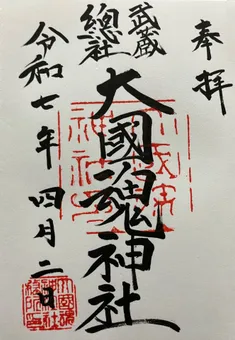 奉拝
武蔵
總社
大國魂神社
令和七年四月二日